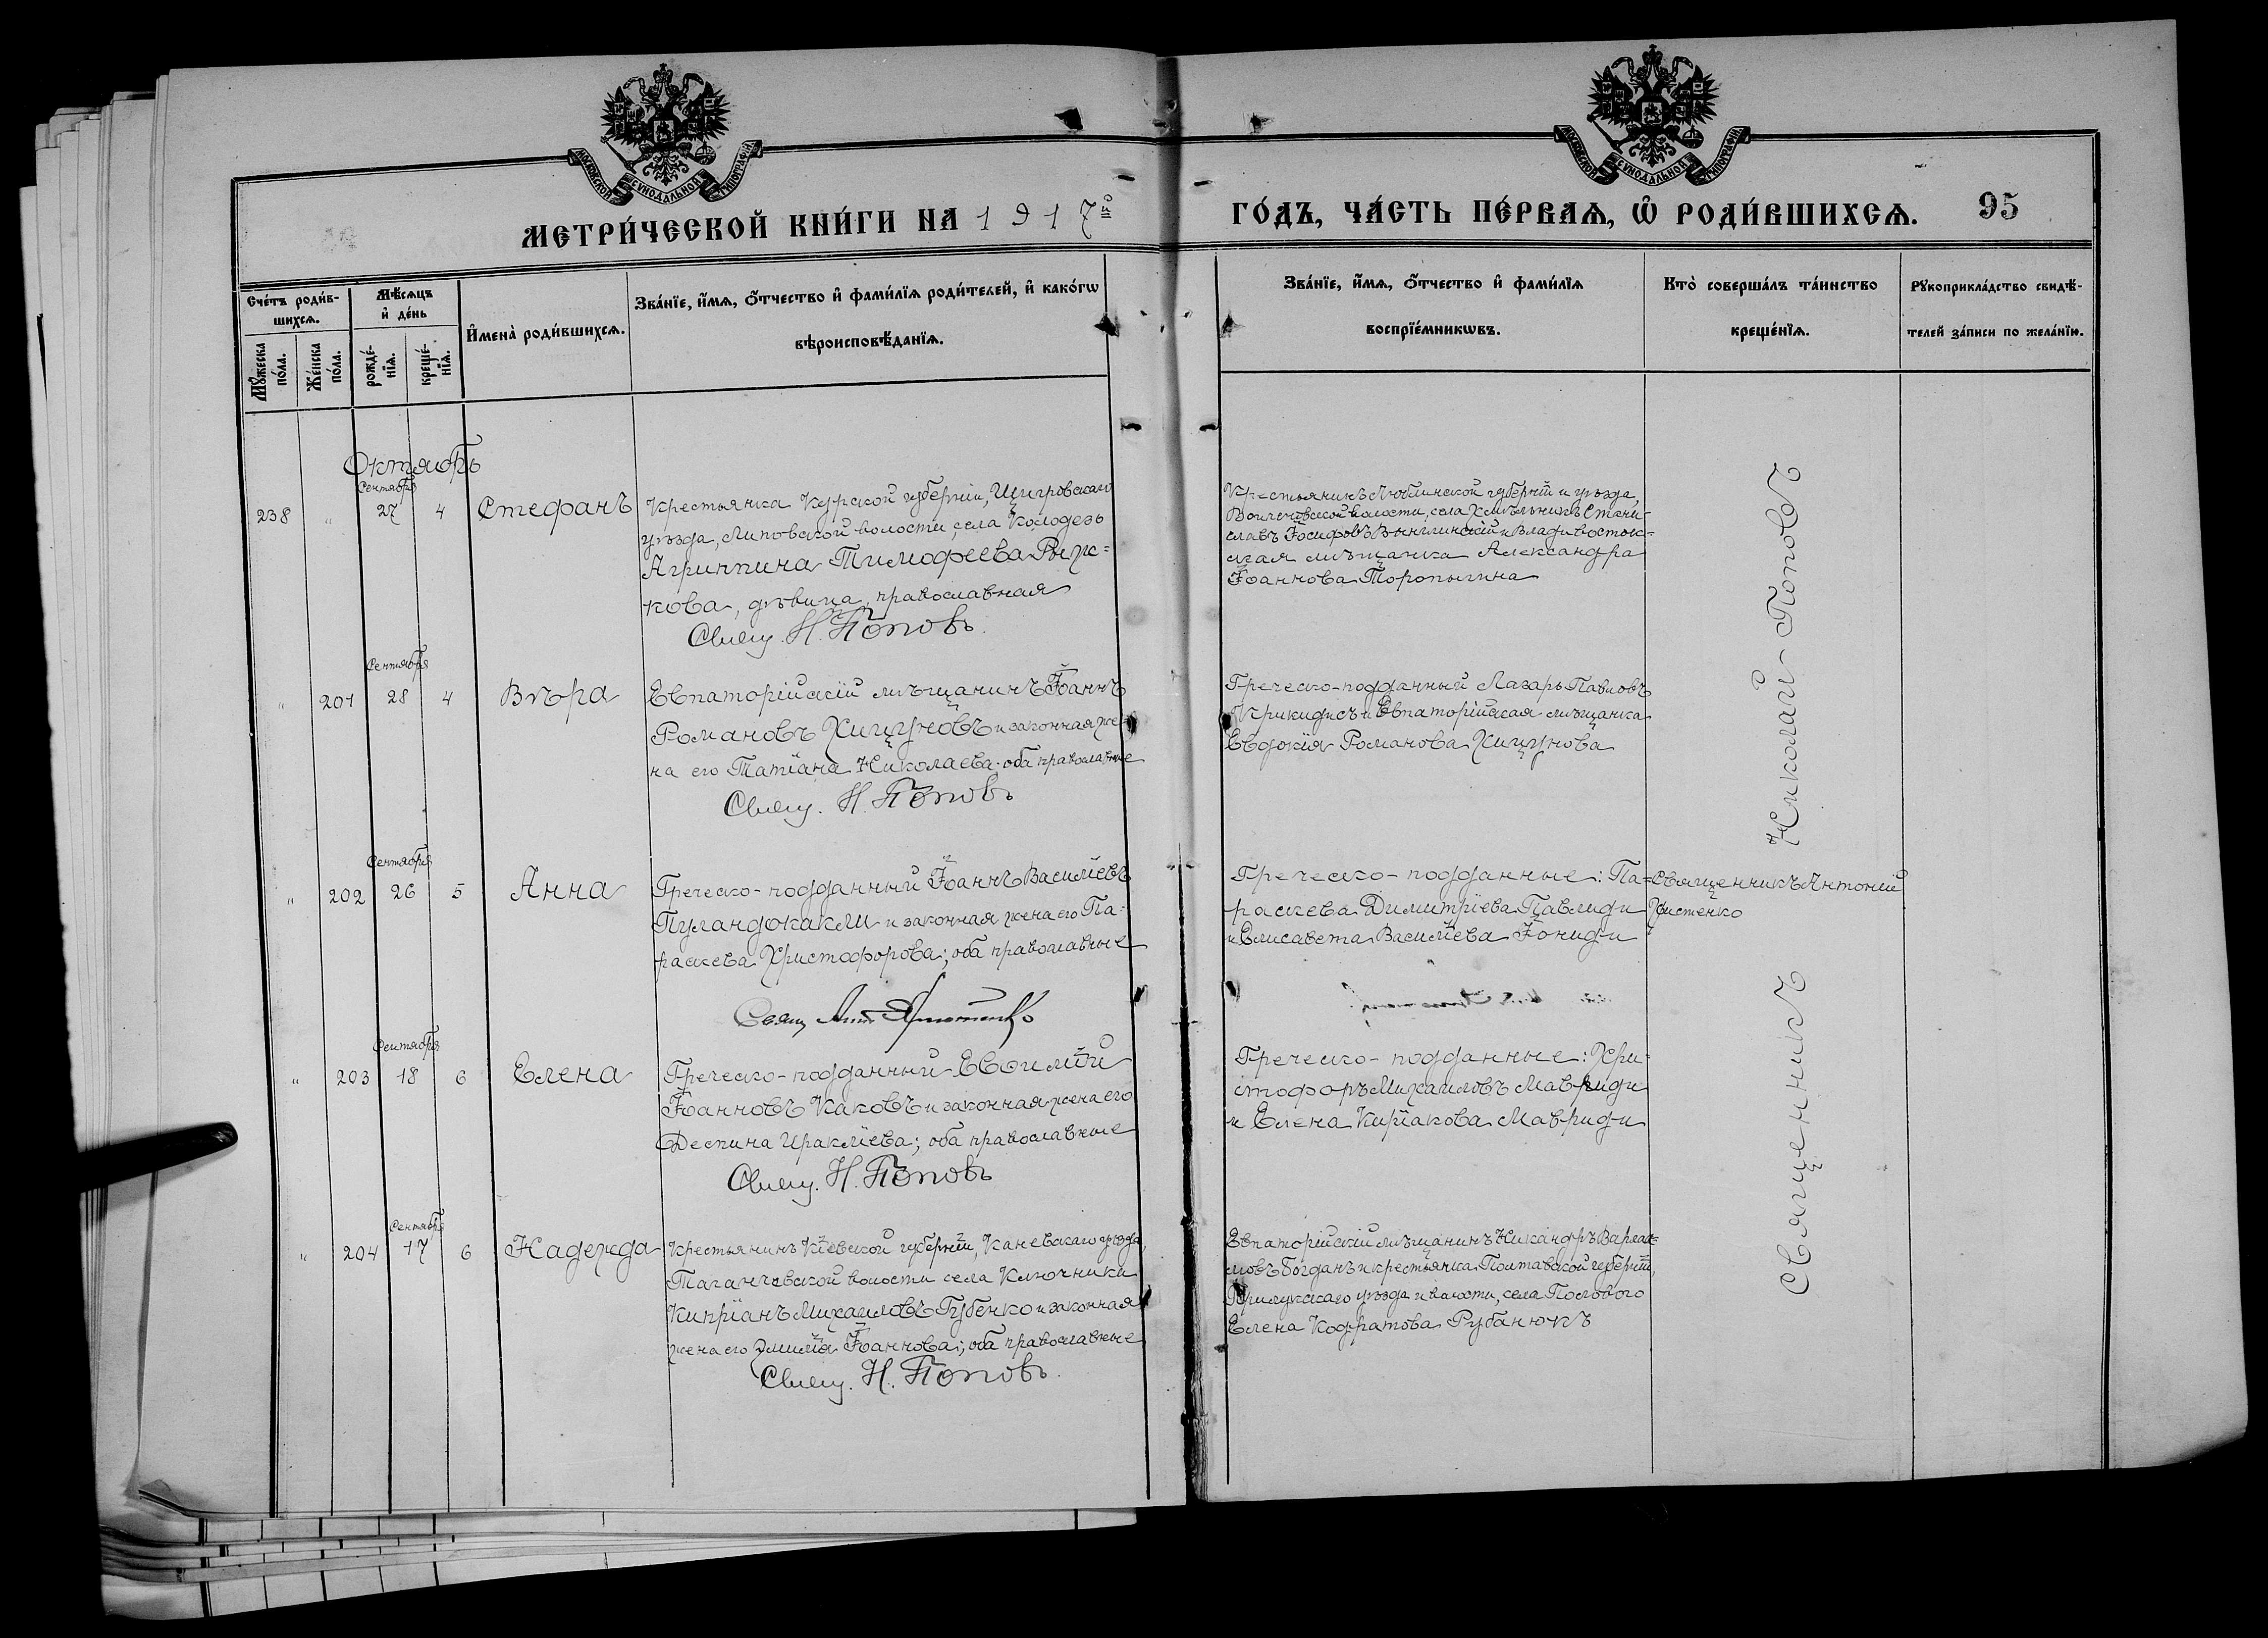 МОСКОВСКОЙ СУНОДАЛЬНОЙ ТИПОГРАФІИ
МОСКОВСКОЙ СУНОДАЛЬНОЙ ТИПОГРАФІИ
МЕТРИ́ЧЕСКОЙ КНИ́ГИ НА 1917й
ГО́ДЪ, ЧА́СТЬ ПЕ́РВАѦ, Ѡ҆ РОДИ́ВШИХСѦ. 95
Сче́тъ роди́в-
шихсѧ.
Мꙋ́жеска по́ла.
Же́нска по́ла.
Мѣ́сѧцъ
и҆ де́нь
рожде́-
нїѧ.
креще́-
нїѧ.
И҆мена̀ роди́вшихсѧ.
Зва́нїе, и҆́мѧ, ѻ҆́тчество и҆ фами́лїѧ роди́телей, и҆ како́гѡ
вѣроисповѣ́данїѧ.
Зва́нїе, и҆́мѧ, ѻ҆́тчество и҆ фами́лїѧ
воспрїе́мникѡвъ.
Кто̀ соверша́лъ та́инство
креще́нїѧ.
Рꙋкоприкла́дство свидѣ́-
телей за́писи по жела́нїю.
Октябрь
Сентября
238 " 27 4 Стефанъ
Крестьянка Курской губерніи, Щигровскаго
уѣзда, Липовской волости, села Колодезь
Агриппина Тимофеева Рыж-
кова, дѣвица, православная
Свящ. Н. Поповъ
Крестьянинъ Люблинской губерніи и уѣзда,
волости, села Хмѣльникъ Стани-
славъ Іосифовъ и Владивосток-
ская мѣщанка Александра
Іоаннова Торопыгина
Сентября
" 201 28 4 Вѣра
Евпаторійскій мѣщанинъ Іоаннъ
Романовъ Хицуновъ и законная же-
на его Татіана Николаева; оба православные
Свящ. Н. Поповъ
Греческо-подданный Лазарь Павловъ
Крикидисъ и Евпаторійская мѣщанка
Евдокія Романова Хицунова
Священникъ Николай Поповъ
Сентября
" 202 26 5 Анна
Греческо-подданный Іоаннъ Василіевъ
Пуландокакли и законная жена его Па-
раскева Христофорова; оба православные
Свящ. Ант.
Греческо-подданные: Па-
раскева Димитріева Павлиди
и Елисавета Василіева Іониди
Священникъ Антоній
Сентября
" 203 18 6 Елена
Греческо-подданный Евѳимій
Іоанновъ Каковъ и законная жена его
Деспина Ираклїева; оба православные
Свящ. Н. Поповъ
Греческо-подданные: Хри-
стофоръ Михаиловъ Мавриди
и Елена Киріакова Мавриди
Сентября
" 204 17 6 Надежда
Крестьянинъ Кіевской губерніи, Каневскаго уѣзда,
Таганчевской волости села Ключники
Кипріанъ Михаиловъ Губенко и законная
жена его Эмилія Іоаннова; оба православные
Свящ. Н. Поповъ
Евпаторійскій мѣщанинъ Никандръ Варлаа-
мовъ Богданъ и крестьянка Полтавской губерніи,
Прилукскаго уѣзда и волости, села
Елена Кодратова Рубанюкъ